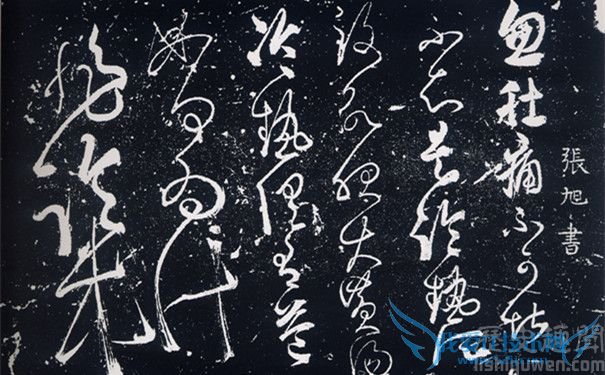 張旭書
忽肚痛不可堪
不知是冷熱所
致欲服大黃湯
冷熱俱有益
如何為計
非臨床
lishiquwen.com